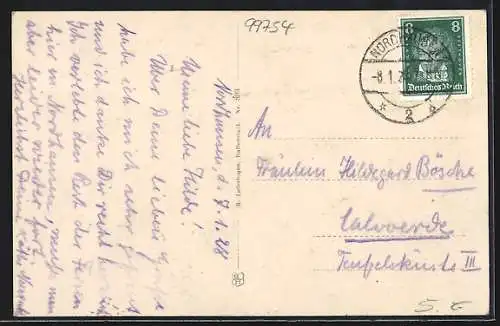 99754
Nordhausen d. 7.1.28
Meine liebe Hilde!
Über Deine lieben Grüße
habe ich mich sehr gefreut
und ich danke Dir recht herzlich
Ich verlebe den Rest der Ferien
hier in Nordhausen, muß nun
aber leider wieder fort.
Herzlichst Deine Käthe
NORDHAUSEN
-8.1.28
* 2
8 8
Deutsches Reich
An
Fräulein Hildegard Bösche
Calvoerde
Teufelsküste III
5.-€